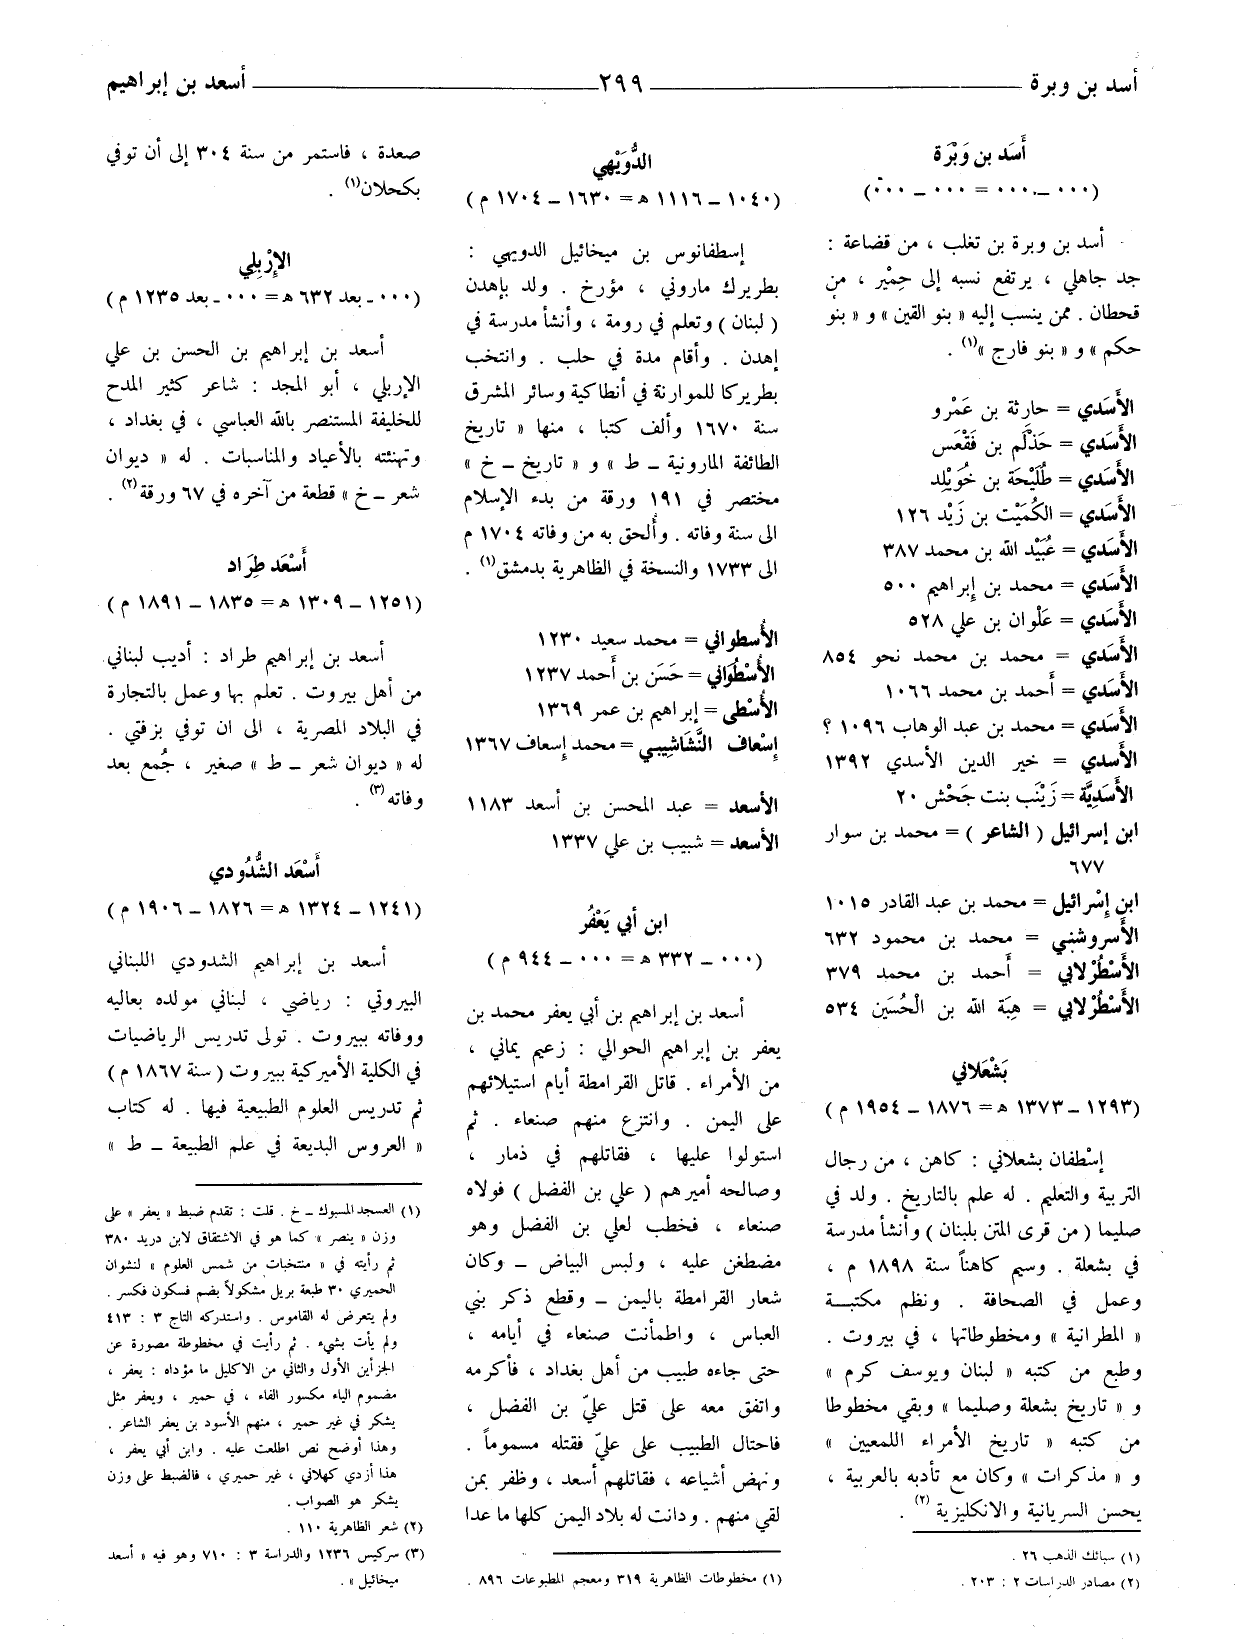 أسد بن وبرة ٢٩٩ أسعد بن إبراهيم
أَسَد بن وَبْرَة
(٠٠٠ ــ ٠٠٠ = ٠٠٠ ــ ٠٠٠)
أسد بن وبرة بن تغلب ، من قضاعة :
جد جاهلي ، يرتفع نسبه إلى حِمْير ، من
قحطان . ممن ينسب إليه « بنو القين » و « بنو
حكم » و « بنو فارج »(١) .
الأَسَدي = حارِثة بن عَمْرو
الأَسَدي = حَذْلَم بن فَقْعَس
الأَسَدي = طُلَيْحَة بن خُوَيْلِد
الأَسَدي = الكُمَيْت بن زَيْد ١٢٦
الأَسَدي = عُبَيْد الله بن محمد ٣٨٧
الأَسَدي = محمد بن إبراهيم ٥٠٠
الأَسَدي = عَلْوان بن علي ٥٢٨
الأَسَدي = محمد بن محمد نحو ٨٥٤
الأَسَدي = أحمد بن محمد ١٠٦٦
الأَسَدي = محمد بن عبد الوهاب ١٠٩٦ ؟
الأَسَدي = خير الدين الأسدي ١٣٩٢
الأَسَدِيَّة = زَيْنَب بنت جَحْش ٢٠
ابن إسرائيل ( الشاعر ) = محمد بن سوار
٦٧٧
ابن إسْرائيل = محمد بن عبد القادر ١٠١٥
الأسروشني = محمد بن محمود ٦٣٢
الأَسْطُرْلابي = أحمد بن محمد ٣٧٩
الأَسْطُرْلابي = هِبَة الله بن الْحُسَين ٥٣٤
بَشْعَلاني
(١٢٩٣ ــ ١٣٧٣ ه = ١٨٧٦ ــ ١٩٥٤ م )
إسْطفان بشعلاني : كاهن ، من رجال
التربية والتعليم . له علم بالتاريخ . ولد في
صليما ( من قرى المتن بلبنان ) وأنشأ مدرسة
في بشعلة . وسيم كاهناً سنة ١٨٩٨ م ،
وعمل في الصحافة . ونظم مكتبة
« المطرانية » ومخطوطاتها ، في بيروت .
وطبع من كتبه « لبنان ويوسف كرم »
و « تاريخ بشعلة وصليما » وبقي مخطوطا
من كتبه « تاريخ الأمراء اللمعيين »
و « مذكرات » وكان مع تأدبه بالعربية ،
يحسن السريانية والانكليزية (٢) .
(١) سبائك الذهب ٢٦ .
(٢) مصادر الدراسات ٢ : ٢٠٣ .
الدُّوَيْهي
(١٠٤٠ ــ ١١١٦ ه = ١٦٣٠ ــ ١٧٠٤ م )
إسطفانوس بن ميخائيل الدويهي :
بطريرك ماروني ، مؤرخ . ولد بإهدن
( لبنان ) وتعلم في رومة ، وأنشأ مدرسة في
إهدن . وأقام مدة في حلب . وانتخب
بطريركا للموارنة في أنطاكية وسائر المشرق
سنة ١٦٧٠ وألف كتبا ، منها « تاريخ
الطائفة المارونية ــ ط » و « تاريخ ــ خ »
مختصر في ١٩١ ورقة من بدء الإسلام
الى سنة وفاته . وأُلحق به من وفاته ١٧٠٤ م
الى ١٧٣٣ والنسخة في الظاهرية بدمشق(١) .
الأُسطواني = محمد سعيد ١٢٣٠
الأُسْطُوَاني = حَسَن بن أحمد ١٢٣٧
الأُسْطى = إبراهيم بن عمر ١٣٦٩
إِسْعاف النَّشَاشِيبي = محمد إسعاف ١٣٦٧
الأسعد = عبد المحسن بن أسعد ١١٨٣
الأسعد = شبيب بن علي ١٣٣٧
ابن أبي يَعْفُر
(٠٠٠ ــ ٣٣٢ ه = ٠٠٠ ــ ٩٤٤ م )
أسعد بن إبراهيم بن أبي يعفر محمد بن
يعفر بن إبراهيم الحوالي : زعيم يماني ،
من الأمراء . قاتل القرامطة أيام استيلائهم
على اليمن . وانتزع منهم صنعاء . ثم
استولوا عليها ، فقاتلهم في ذمار ،
وصالحه أميرهم ( علي بن الفضل ) فولاه
صنعاء ، فخطب لعلي بن الفضل وهو
مضطغن عليه ، ولبس البياض ــ وكان
شعار القرامطة باليمن ــ وقطع ذكر بني
العباس ، واطمأنت صنعاء في أيامه ،
حتى جاءه طبيب من أهل بغداد ، فأكرمه
واتفق معه على قتل عليّ بن الفضل ،
فاحتال الطبيب على عليّ فقتله مسموماً .
ونهض أشياعه ، فقاتلهم أسعد ، وظفر بمن
لقي منهم . ودانت له بلاد اليمن كلها ما عدا
(١) مخطوطات الظاهرية ٣١٩ ومعجم المطبوعات ٨٩٦ .
صعدة ، فاستمر من سنة ٣٠٤ إلى أن توفي
بكحلان(١) .
الإرْبِلي
(٠٠٠ ــ بعد ٦٣٢ ه = ٠٠٠ ــ بعد ١٢٣٥ م )
أسعد بن إبراهيم بن الحسن بن علي
الإربلي ، أبو المجد : شاعر كثير المدح
للخليفة المستنصر بالله العباسي ، في بغداد ،
وتهنئته بالأعياد والمناسبات . له « ديوان
شعر ــ خ » قطعة من آخره في ٦٧ ورقة(٢) .
أَسْعَد طِرَاد
(١٢٥١ ــ ١٣٠٩ ه = ١٨٣٥ ــ ١٨٩١ م )
أسعد بن إبراهيم طراد : أديب لبناني
من أهل بيروت . تعلم بها وعمل بالتجارة
في البلاد المصرية ، الى ان توفي بزفتي .
له « ديوان شعر ــ ط » صغير ، جُمع بعد
وفاته(٣) .
أَسْعَد الشُّدُودي
(١٢٤١ ــ ١٣٢٤ ه = ١٨٢٦ ــ ١٩٠٦ م )
أسعد بن إبراهيم الشدودي اللبناني
البيروتي : رياضي ، لبناني مولده بعاليه
ووفاته ببيروت . تولى تدريس الرياضيات
في الكلية الأميركية ببيروت ( سنة ١٨٦٧ م )
ثم تدريس العلوم الطبيعية فيها . له كتاب
« العروس البديعة في علم الطبيعة ــ ط »
(١) العسجد المسبوك ــ خ . قلت : تقدم ضبط « يعفر » على
وزن « ينصر » كما هو في الاشتقاق لابن دريد ٣٨٠
ثم رأيته في « منتخبات من شمس العلوم » لنشوان
الحميري ٣٠ طبعة بريل مشكولاً بضم فسكون فكسر .
ولم يتعرض له القاموس . واستدركه التاج ٣ : ٤١٣
ولم يأت بشيء . ثم رأيت في مخطوطة مصورة عن
الجزأين الأول والثاني من الاكليل ما مؤداه : يعفر ،
مضموم الياء مكسور الفاء ، في حمير ، ويعفر مثل
يشكر في غير حمير ، منهم الأسود بن يعفر الشاعر .
وهذا أوضح نص اطلعت عليه . وابن أبي يعفر ،
هذا أزدي كهلاني ، غير حميري ، فالضبط على وزن
يشكر هو الصواب .
(٢) شعر الظاهرية ١١٠ .
(٣) سركيس ١٢٣٦ والدراسة ٣ : ٧١٠ وهو فيه « أسعد
ميخائيل » .